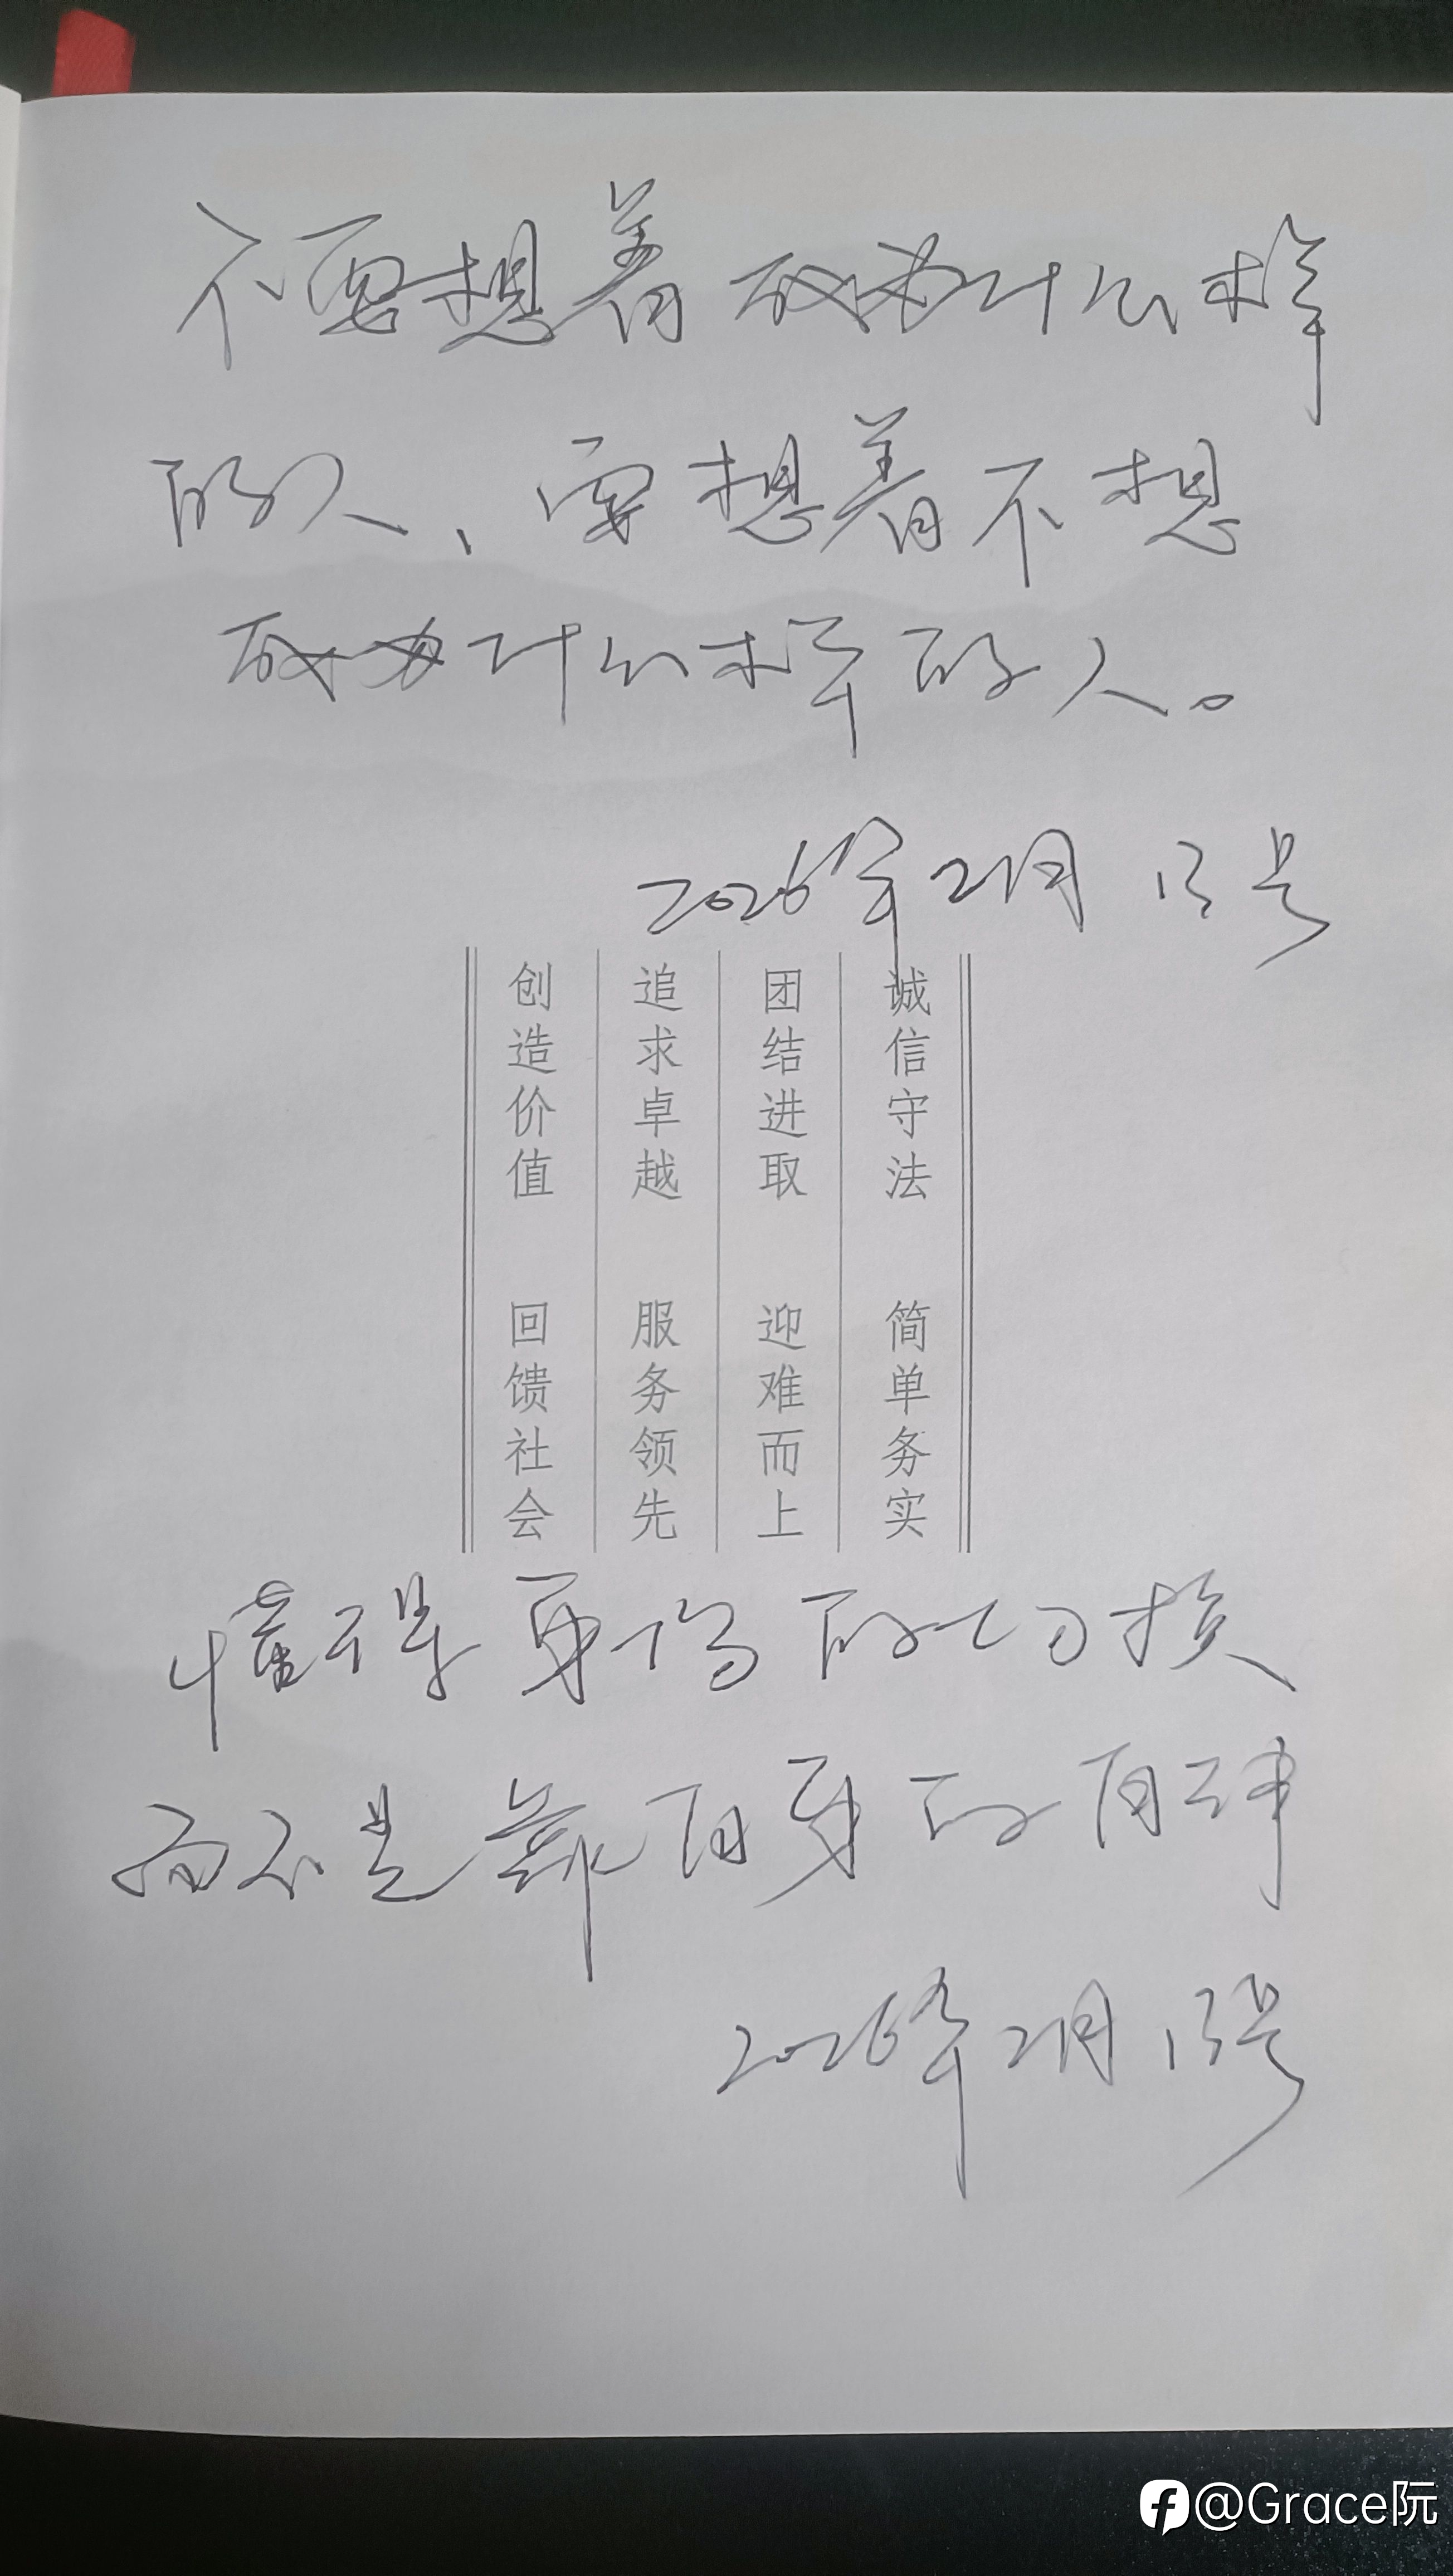 不要想着成为什么样
的人、要想着不想
成为什么样的人。
2026年2月13号
诚信守法 简单务实
团结进取 迎难而上
追求卓越 服务领先
创造价值 回馈社会
懂得更约的切换
而不是靠自身的自律
2026年2月13号
@Grace阮